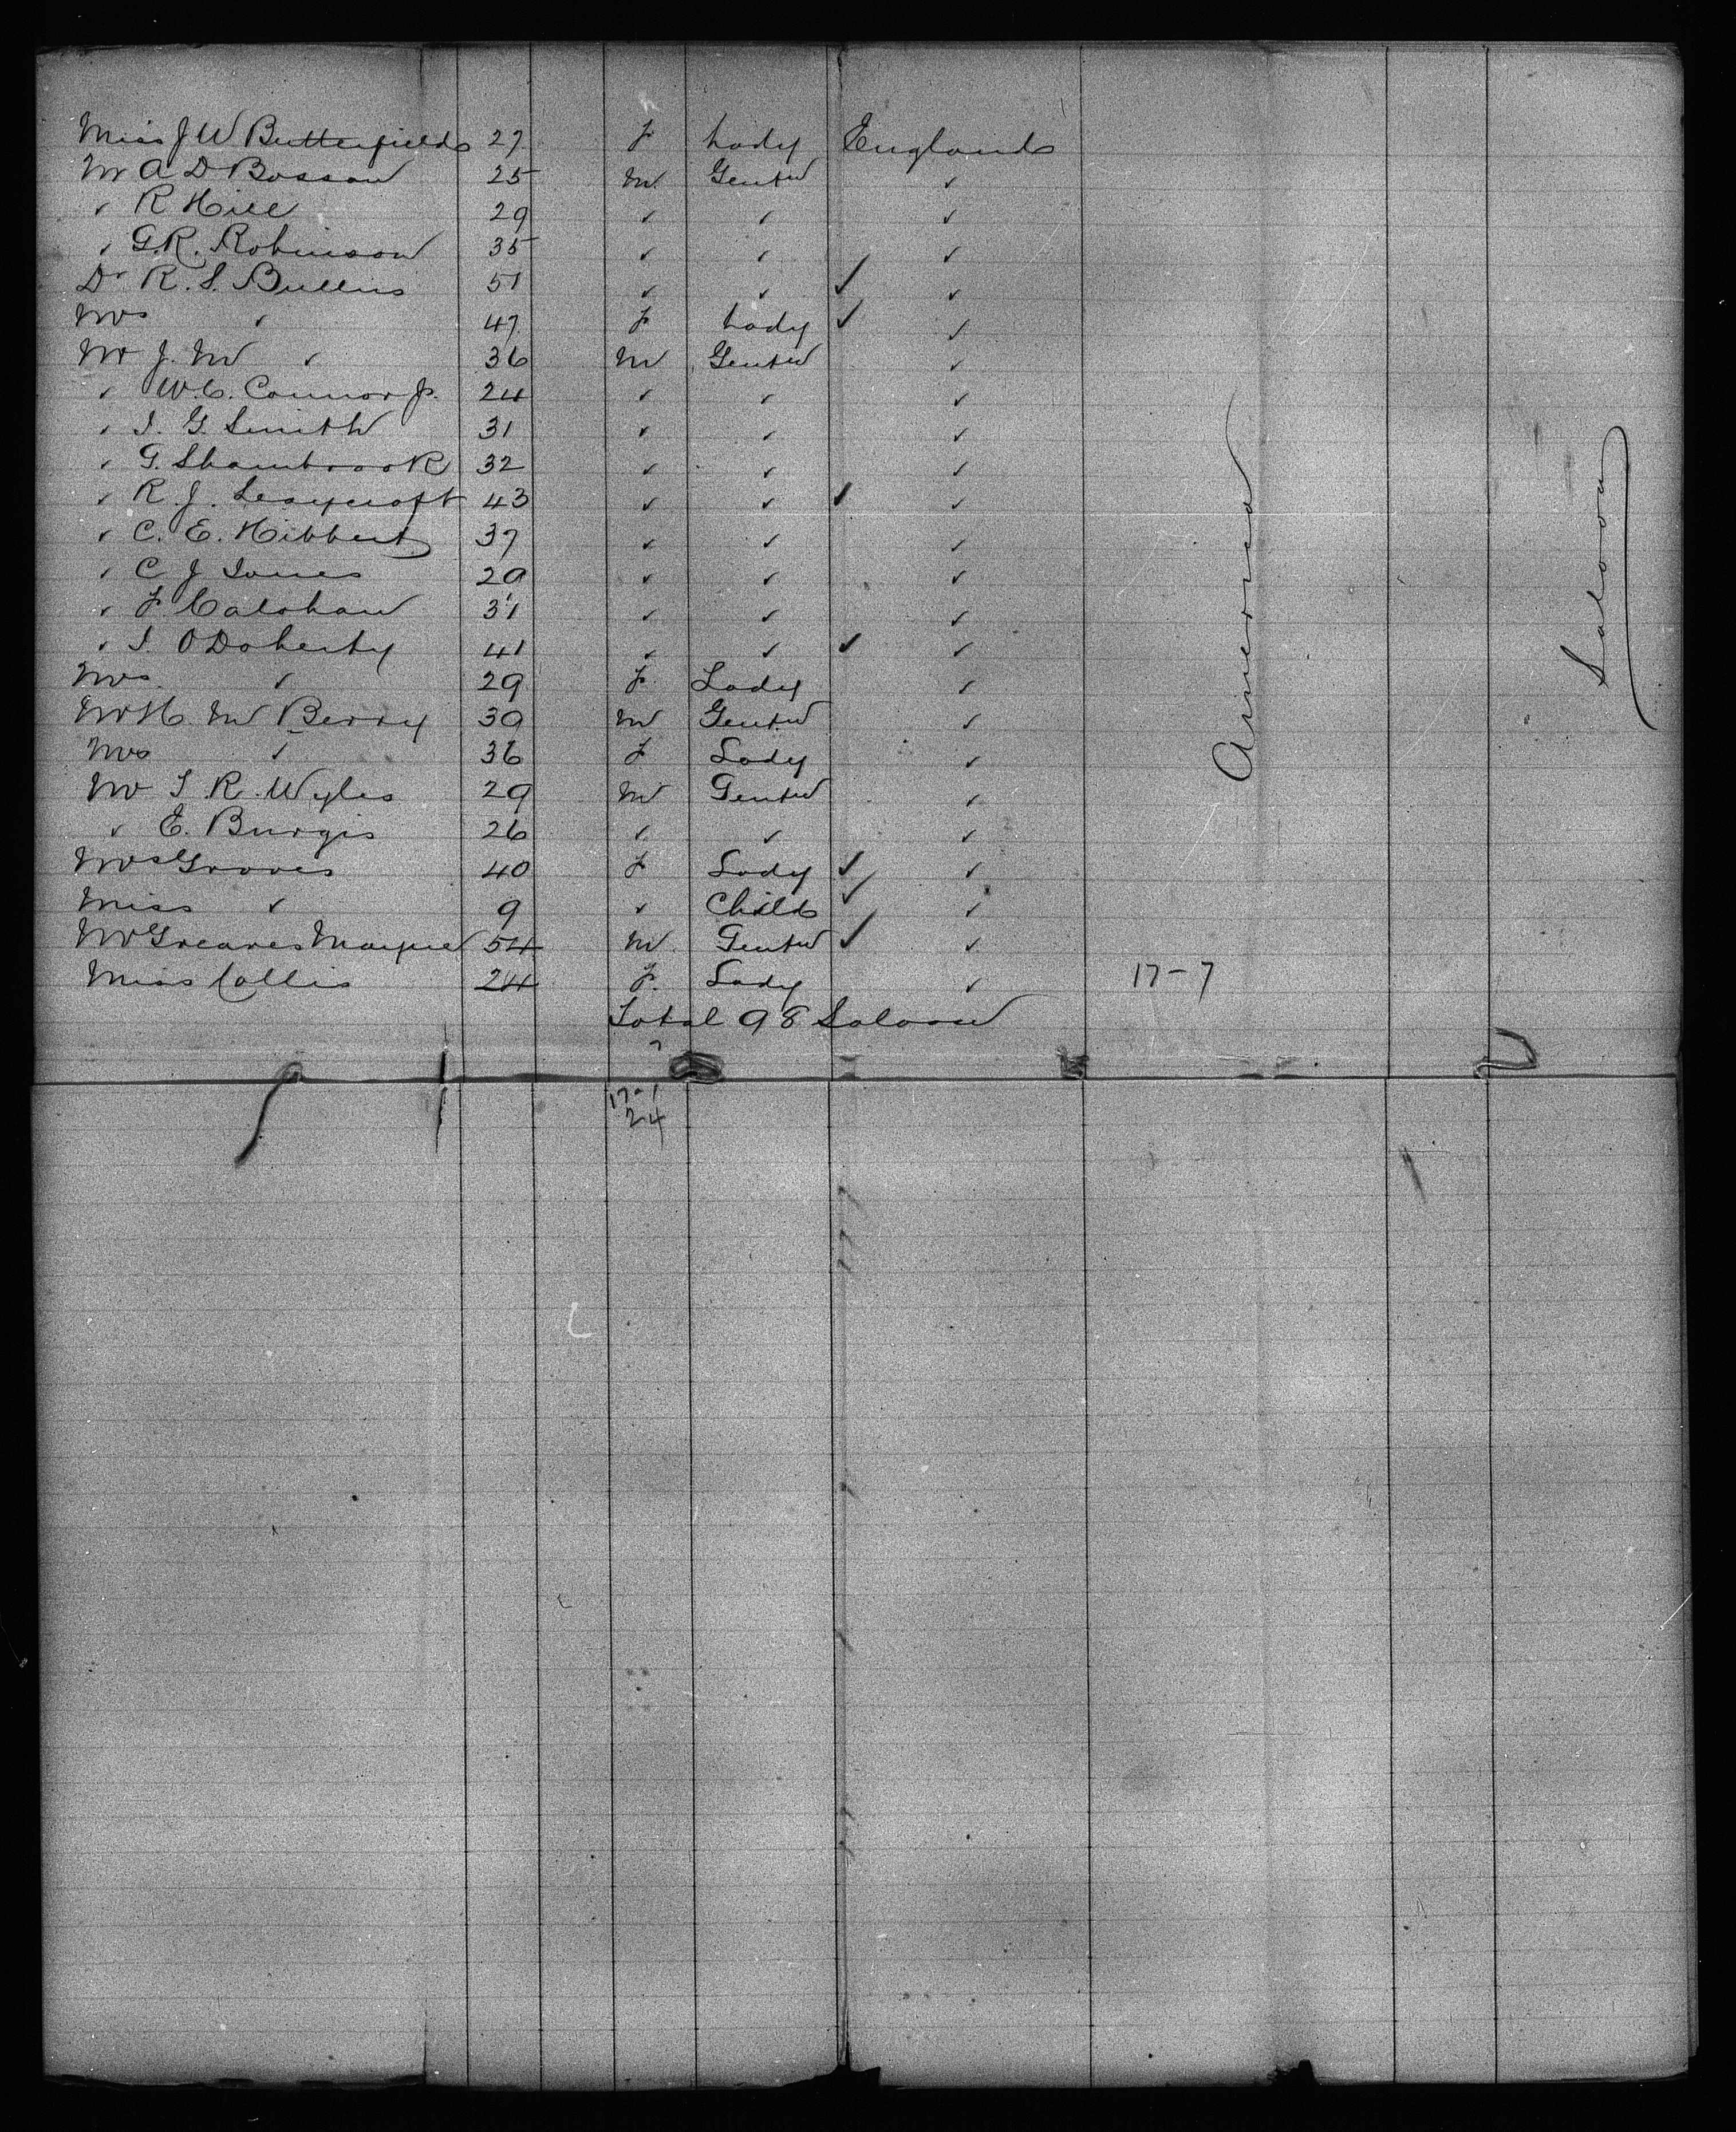 Miss J W Butterfield 27 F Lady England
Mr A D Bosson 25 M Gentn ✓
✓ R Hill 29 ✓ ✓ ✓
✓ G.R. Robinson 35 ✓ ✓ ✓
Dr R. S. Bullis 51 ✓ ✓ ✓ ✓
Mrs ✓ 47 F Lady ✓ ✓
Mr J. M ✓ 36 M Gentn ✓
✓ W.C. Connor Jr. 24 ✓ ✓ ✓
✓ J. G. Smith 31 ✓ ✓ ✓
✓ G. Shambrook 32 ✓ ✓ ✓
✓ R. J. Leaycroft 43 ✓ ✓ ✓ ✓
✓ C. E. Hibbert 37 ✓ ✓ ✓
✓ C J Jones 29 ✓ ✓ ✓
✓ F Calshaw 31 ✓ ✓ ✓
✓ J. ODoherty 41 ✓ ✓ ✓ ✓
Mrs ✓ 29 F Lady ✓
Mr H M Berry 39 M Gentn ✓
Mrs ✓ 36 F Lady ✓
Mr T. R. Wyles 29 M Gentn ✓
✓ E. Burgis 26 ✓ ✓ ✓
Mrs Groves 40 F Lady ✓ ✓
Miss ✓ 9 ✓ Child ✓ ✓
Mr Greaves 54 M Gentn ✓ ✓
Miss Collis 24 F. Lady ✓ 17-7
Total 98 Saloon
17-1
24
America
Saloon